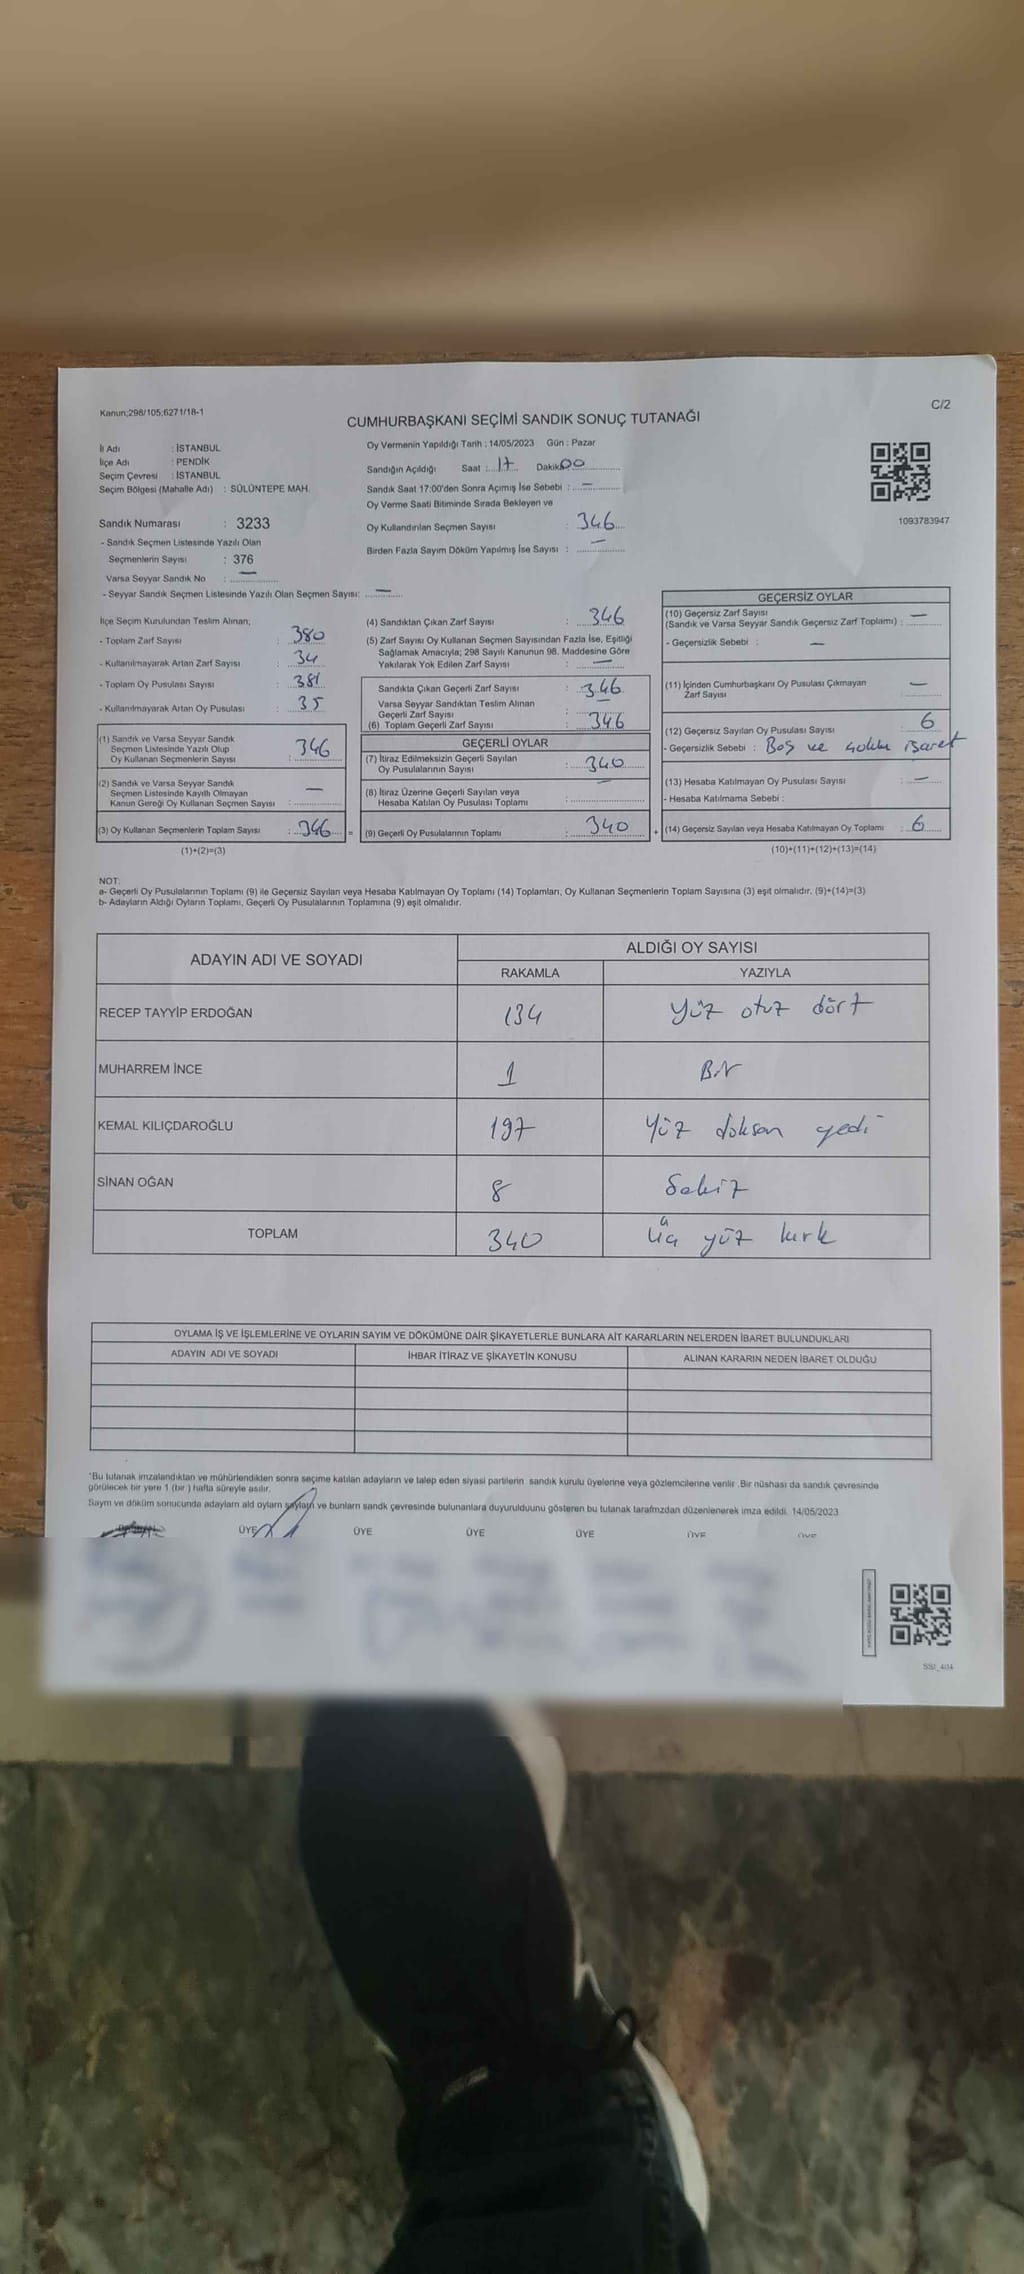 Kanun;298/105;6271/18-1
C/2
CUMHURBAŞKANI SEÇİMİ SANDIK SONUÇ TUTANAĞI
İl Adı : İSTANBUL
İlçe Adı : PENDİK
Seçim Çevresi : İSTANBUL
Seçim Bölgesi (Mahalle Adı) : SÜLÜNTEPE MAH.
Sandık Numarası : 3233
- Sandık Seçmen Listesinde Yazılı Olan
Seçmenlerin Sayısı : 376
Varsa Seyyar Sandık No : —
- Seyyar Sandık Seçmen Listesinde Yazılı Olan Seçmen Sayısı: —
Oy Vermenin Yapıldığı Tarih : 14/05/2023 Gün : Pazar
Sandığın Açıldığı Saat : 17 Dakika 00
Sandık Saat 17:00'den Sonra Açımış İse Sebebi : —
Oy Verme Saati Bitiminde Sırada Bekleyen ve
Oy Kullandırılan Seçmen Sayısı : 346
Birden Fazla Sayım Döküm Yapılmış İse Sayısı : —
1093783947
İlçe Seçim Kurulundan Teslim Alınan;
- Toplam Zarf Sayısı : 380
- Kullanılmayarak Artan Zarf Sayısı : 34
- Toplam Oy Pusulası Sayısı : 381
- Kullanılmayarak Artan Oy Pusulası : 35
(1) Sandık ve Varsa Seyyar Sandık
Seçmen Listesinde Yazılı Olup
Oy Kullanan Seçmenlerin Sayısı : 346
(2) Sandık ve Varsa Seyyar Sandık
Seçmen Listesinde Kayıtlı Olmayan
Kanun Gereği Oy Kullanan Seçmen Sayısı : —
(3) Oy Kullanan Seçmenlerin Toplam Sayısı : 346 =
(1)+(2)=(3)
(4) Sandıktan Çıkan Zarf Sayısı : 346
(5) Zarf Sayısı Oy Kullanan Seçmen Sayısından Fazla İse, Eşitliği
Sağlamak Amacıyla; 298 Sayılı Kanunun 98. Maddesine Göre
Yakılarak Yok Edilen Zarf Sayısı : —
Sandıkta Çıkan Geçerli Zarf Sayısı : 346
Varsa Seyyar Sandıktan Teslim Alınan
Geçerli Zarf Sayısı : —
(6) Toplam Geçerli Zarf Sayısı : 346
GEÇERLİ OYLAR
(7) İtiraz Edilmeksizin Geçerli Sayılan
Oy Pusulalarının Sayısı : 340
(8) İtiraz Üzerine Geçerli Sayılan veya
Hesaba Katılan Oy Pusulası Toplamı : —
(9) Geçerli Oy Pusulalarının Toplamı : 340 +
GEÇERSİZ OYLAR
(10) Geçersiz Zarf Sayısı
(Sandık ve Varsa Seyyar Sandık Geçersiz Zarf Toplamı) : —
- Geçersizlik Sebebi : —
(11) İçinden Cumhurbaşkanı Oy Pusulası Çıkmayan
Zarf Sayısı : —
(12) Geçersiz Sayılan Oy Pusulası Sayısı : 6
- Geçersizlik Sebebi : Boş ve işaret
(13) Hesaba Katılmayan Oy Pusulası Sayısı : —
- Hesaba Katılmama Sebebi :
(14) Geçersiz Sayılan veya Hesaba Katılmayan Oy Toplamı : 6
(10)+(11)+(12)+(13)=(14)
NOT:
a- Geçerli Oy Pusulalarının Toplamı (9) ile Geçersiz Sayılan veya Hesaba Katılmayan Oy Toplamı (14) Toplamları, Oy Kullanan Seçmenlerin Toplam Sayısına (3) eşit olmalıdır. (9)+(14)=(3)
b- Adayların Aldığı Oyların Toplamı, Geçerli Oy Pusulalarının Toplamına (9) eşit olmalıdır.
ADAYIN ADI VE SOYADI ALDIĞI OY SAYISI
RAKAMLA YAZIYLA
RECEP TAYYİP ERDOĞAN 134 Yüz otuz dört
MUHARREM İNCE 1 Bir
KEMAL KILIÇDAROĞLU 197 Yüz doksan yedi
SİNAN OĞAN 8 Sekiz
TOPLAM 340 Üç yüz kırk
OYLAMA İŞ VE İŞLEMLERİNE VE OYLARIN SAYIM VE DÖKÜMÜNE DAİR ŞİKAYETLERLE BUNLARA AİT KARARLARIN NELERDEN İBARET BULUNDUKLARI
ADAYIN ADI VE SOYADI İHBAR İTİRAZ VE ŞİKAYETİN KONUSU ALINAN KARARIN NEDEN İBARET OLDUĞU
*Bu tutanak imzalandıktan ve mühürlendikten sonra seçime katılan adayların ve talep eden siyasi partilerin sandık kurulu üyelerine veya gözlemcilerine verilir. Bir nüshası da sandık çevresinde
görülecek bir yere 1 (bir ) hafta süreyle asılır.
Sayım ve döküm sonucunda adayların ald oyların sayıları ve bunların sandk çevresinde bulunanlara duyurulduunu gösteren bu tutanak tarafmzdan düzenlenerek imza edildi. 14/05/2023
ÜYE ÜYE ÜYE ÜYE ÜYE ÜYE
SSI_404